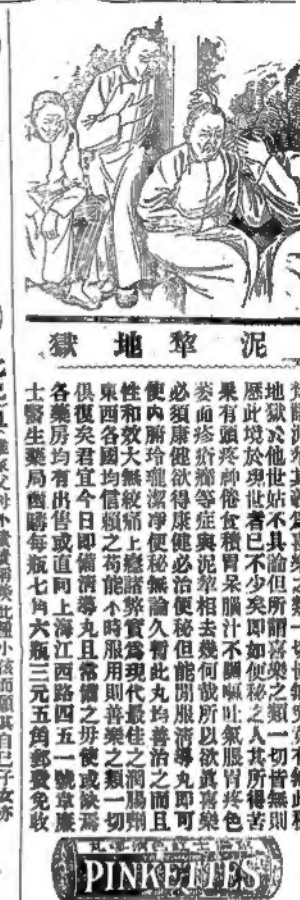 泥犂地獄
地獄於他世姑不具論但所謂喜樂之類一切皆無則
歷此境於現世者已不少矣即如便秘之人其所得苦
果有頭疼神倦食積胃呆腦汁不調嘔吐氣脹胃疼色
萎面疹瘡癤等症與泥犂相去幾何哉所以欲眞喜樂
必須康健欲得康健必治便秘但能間服清導丸即可
使內腑玲瓏潔凈便秘無論久暫此丸均善治之而且
性和效大無絞痛上癮諸弊實爲現代最佳之潤腸劑
東西各國均信賴之苟能不時服用則善樂之類一切
俱復矣君宜今日即備清導丸且常備之毋使或缺焉
各藥房均有出售或直向上海江西路四五一號韋廉
士醫生藥局函購每瓶七角六瓶三元五角郵費免收
PINKETTES